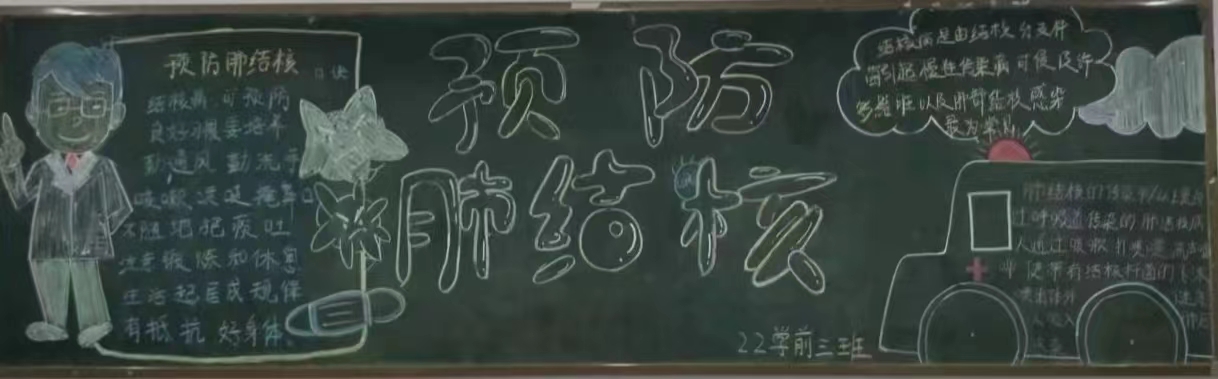 预防肺结核
口诀
结核病 可预防
良好习惯要培养
勤通风 勤洗手
咳嗽 喷嚏掩鼻口
不随地把痰吐
注意锻炼和休息
生活起居成规律
有抵抗 好身体
预防
肺结核
结核病是由结核分支杆
菌引起慢性传染病可侵及许
多器脏以及肺部结核感染
最为常见
肺结核的传染
呼吸道传染的肺结核病
人通过咳嗽打喷嚏高声
使带有结核杆菌的
喷出体外
吸入
22学前三班